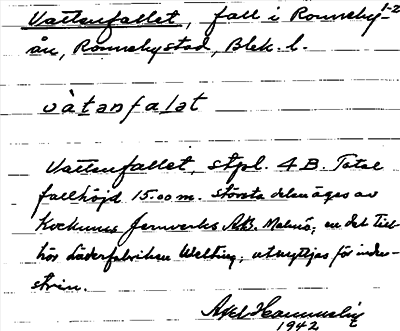 Vattenfallet, fall i Ronneby 1-2
ån, Ronneby stad, Blek. l.
vàtanfalat
Vattenfallet, stpl. 4 B. Total
fallhöjd 15.00 m. Största delen äges av
Kockums Jernverks A.B. Malmö; en del till-
hör Läderfabriken Welting; utnyttjas för indu-
strin.
Axel
1942